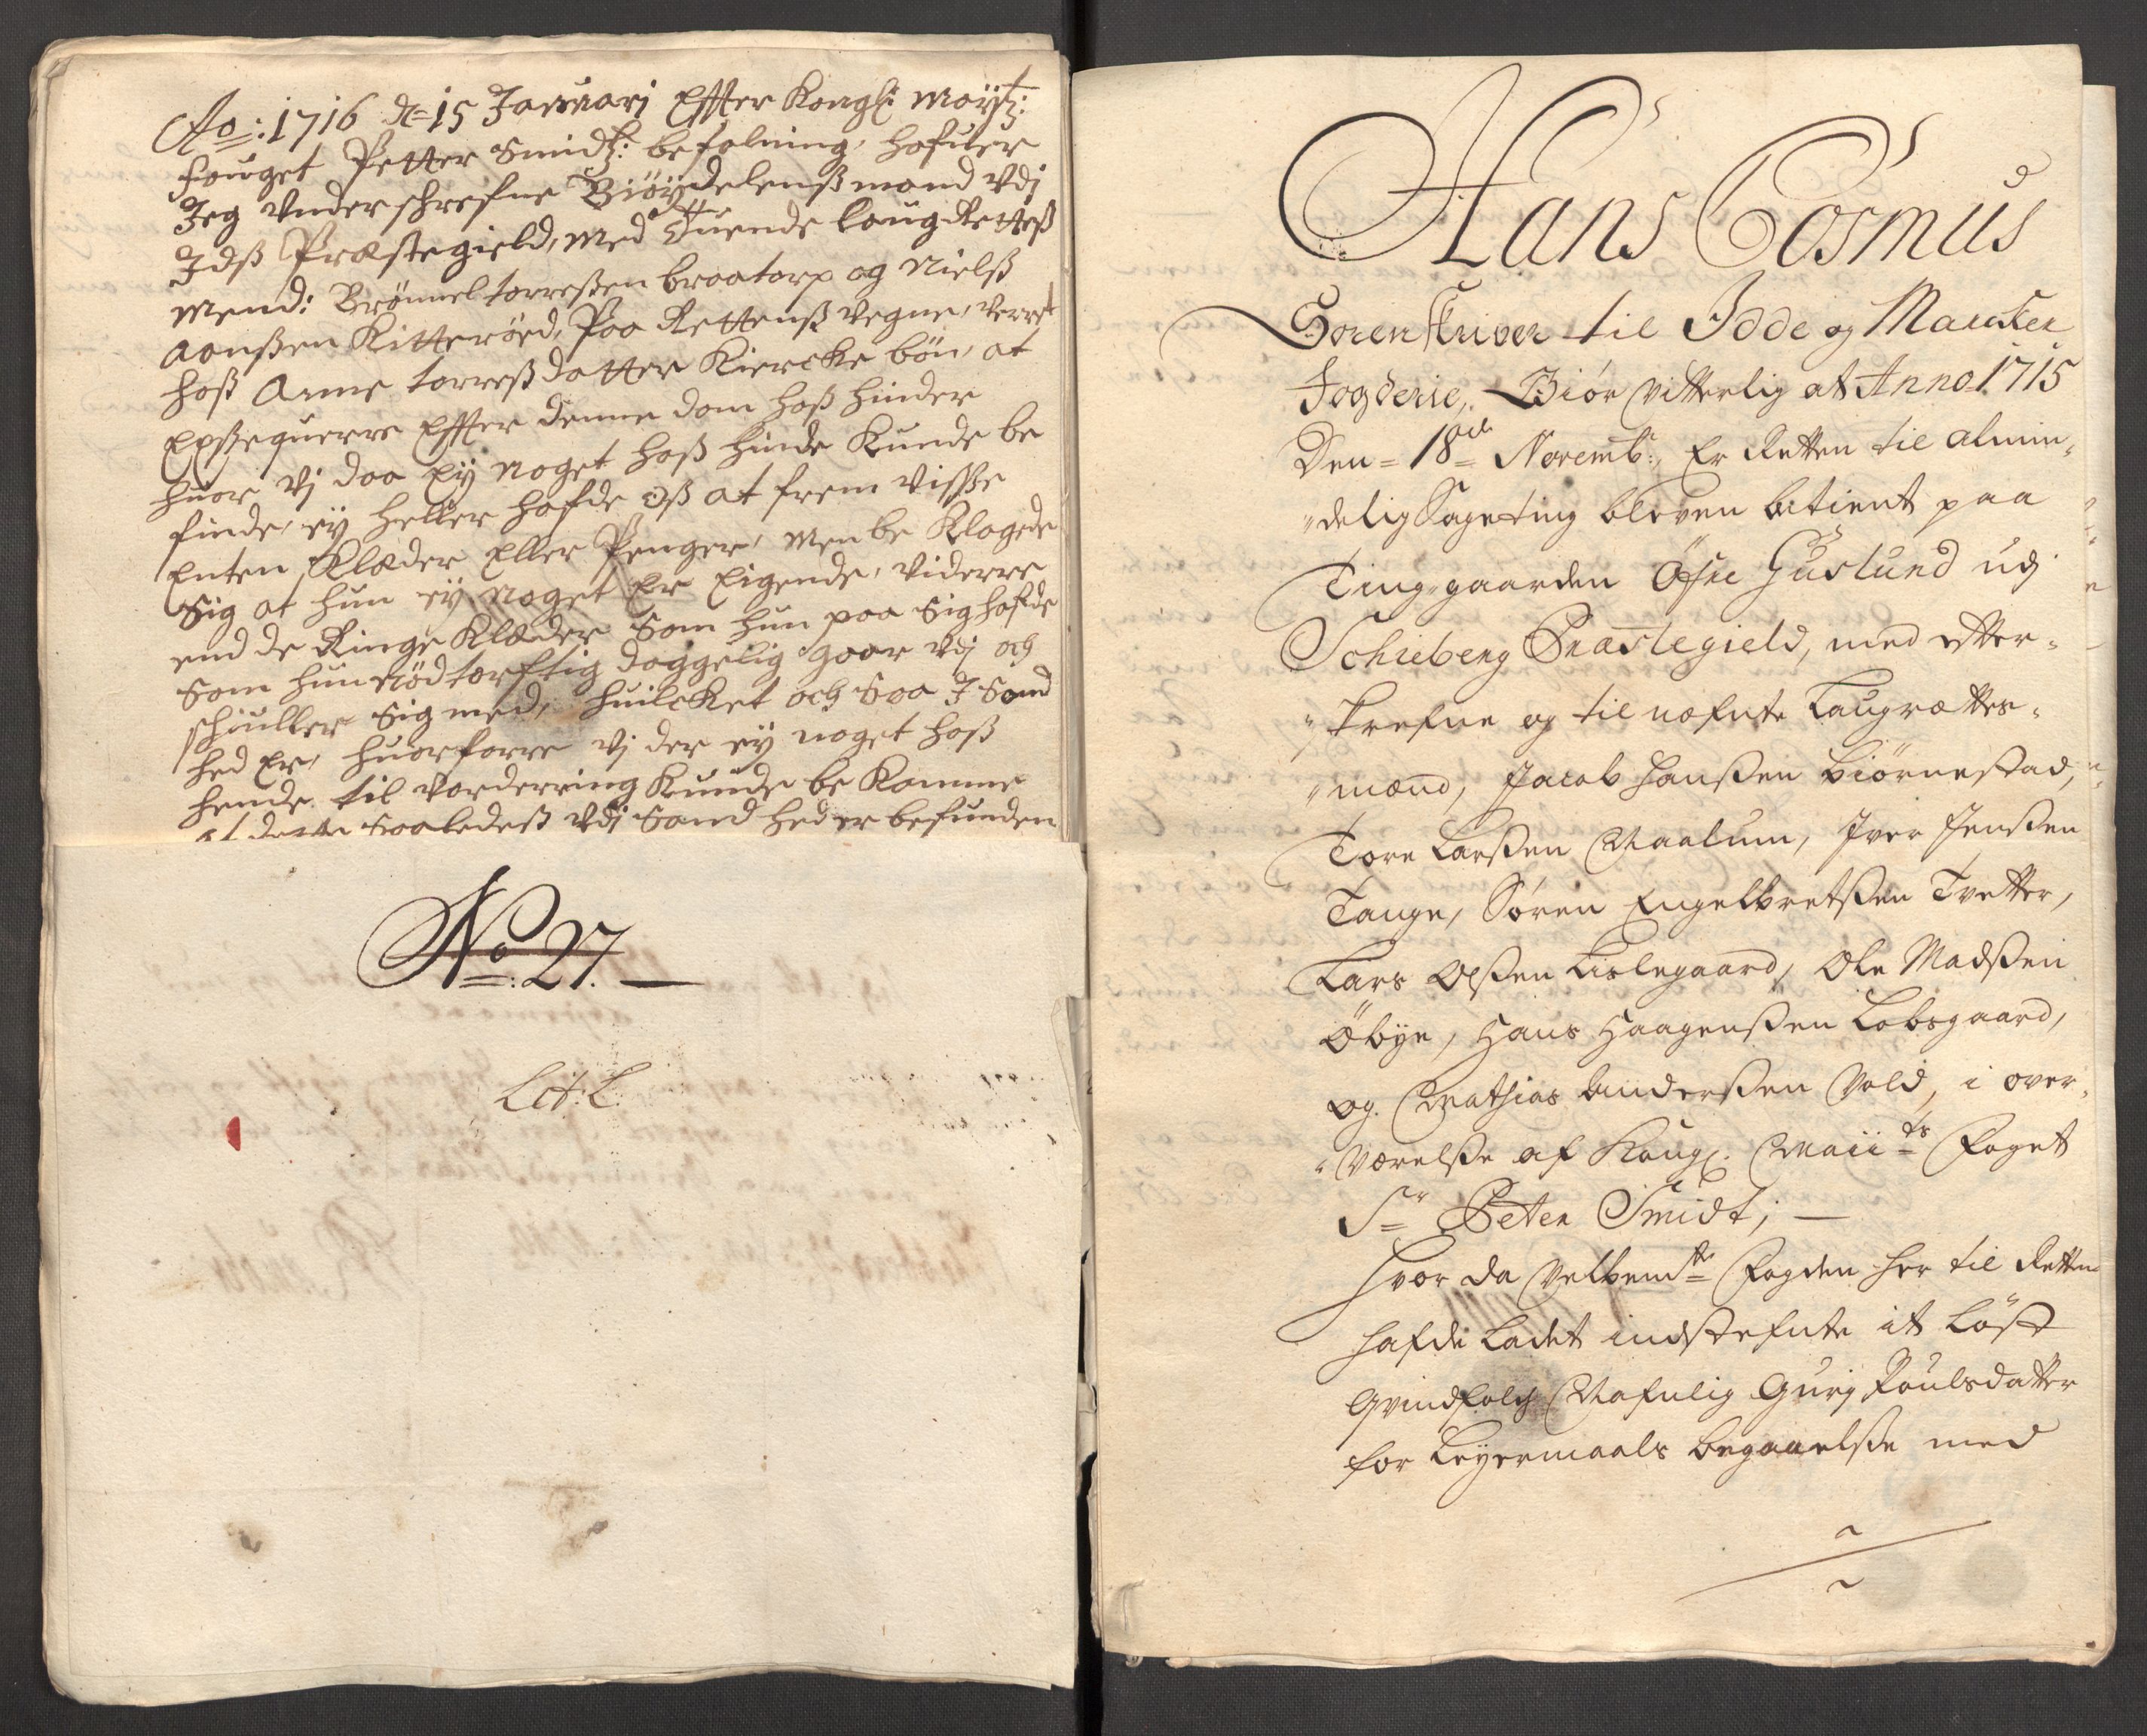 Ao: 1716 d= 15 Januarj Effter Kongl: Maÿtz:
fouget Petter Smidtz: befalning, hafuer
Jeg vnderschrefne Biöÿdelenßmand vdj
Idß Præstegield, med tuende laugRettes
mend: Brönnel torreßen braatorp og Nielß
aonßen Kitteröed, Paa Rettenß vegne, verret
hoß Anne torreßdatter Kiercke bön, at
Expsequerre Effter denne dom hoß hinder
huor vj daa Eÿ noget hoß hinde kunde be
finde, eÿ heller hafde oß at frem visse
Enten Klæder Eller Penger, men be klagede
Sig at hun eÿ noget Er Eigende, viderre
end de Ringe Klæder Som hun paa Sig hafde
Som hun nödtorftig daggelig gaar vdj och
schiuller Sig med, huilcket och Saa J Sand
hed Er, huorforre vj der eÿ noget hoß
hende til vorderring kunde be komme
at dette Saaledeß vdj Sand hed er befunden
No: 27.
Lit: L.
Hans Cosmus
Sorenskriver til Idde og Marcker
Fogderie, Giör vitterlig at Anno 1715
Den 18de Novemb: Er Retten til almin-
delig Sageting bleven betient paa
Tinggaarden Östre Guslund udj
Schieberg Præstegield, med efter-
skrefne og til næfnte Laugrættes-
mænd, Jacob Hanßen Biörnestad,
Tore Larßen Maalum, Iver Jenßen
Tange, Sören Engelbretßen Tvetter,
Lars Olßen Lislegaard, Ole Madßen
Öbye, Hans Haagenßen Labsgaard,
og Mathias Anderßen Vold, i over-
værelße af Kongl. Maiits Foget
Sr Peter Smidt;
Hvor da Velbemte Fogden her til Retten
hafde ladet indstefnte it löst
Qvindfolch Nafnlig Gurj Poulsdatter
for Leyermaals begaaelße med